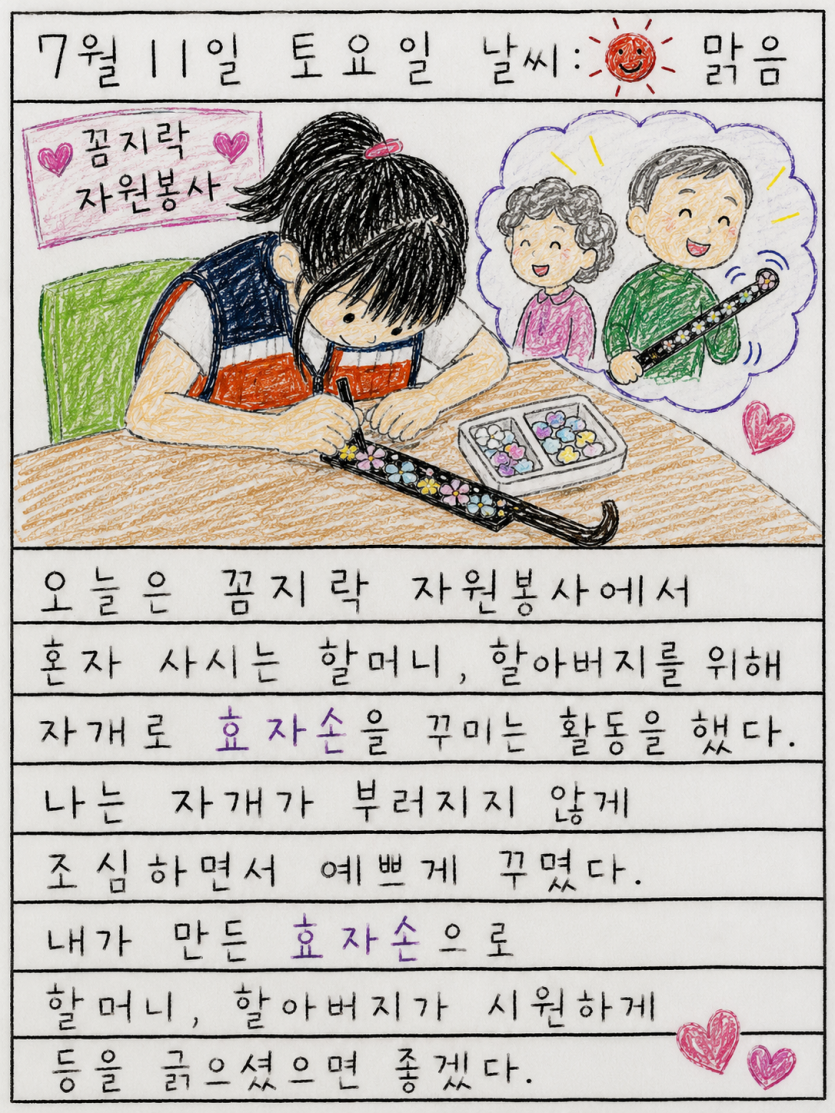 7월 11일 토요일 날씨: 맑음
꼼지락
자원봉사
오늘은 꼼지락 자원봉사에서
혼자 사시는 할머니, 할아버지를 위해
자개로 효자손을 꾸미는 활동을 했다.
나는 자개가 부러지지 않게
조심하면서 예쁘게 꾸몄다.
내가 만든 효자손으로
할머니, 할아버지가 시원하게
등을 긁으셨으면 좋겠다.